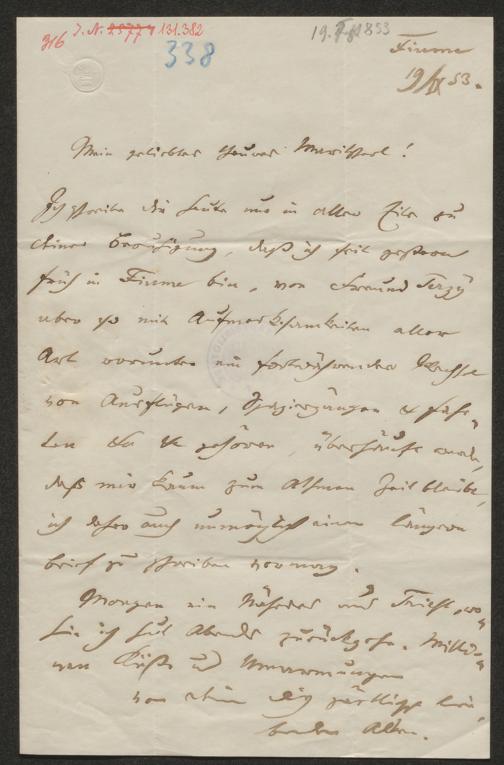 316 J. N. 25774 131.382
338
19. 1853
Fiume
19/ 53.
Mein geliebter theurer
Ich schreibe Dir heute nur in aller Eile zu
Deiner Beruhigung, daß ich seit gestern
früh in Fiume bin, von Freund
aber so mit Aufmerksamkeiten aller
Art worunter ein fortwährender Wechsel
von Ausflügen, Spaziergängen & Fahr„
ten gehören, überhäuft werde,
daß mir kaum zum Athmen Zeit bleibt,
ich daher auch unmöglich einen längern
Brief zu schreiben vermag.
Morgen ein Näheres aus Triest, wo„
hin ich heut Abends zurückgehe. Millio„
nen Küße und Umarmungen
von Deinem Dich zärtlichst lie„
benden Alten.